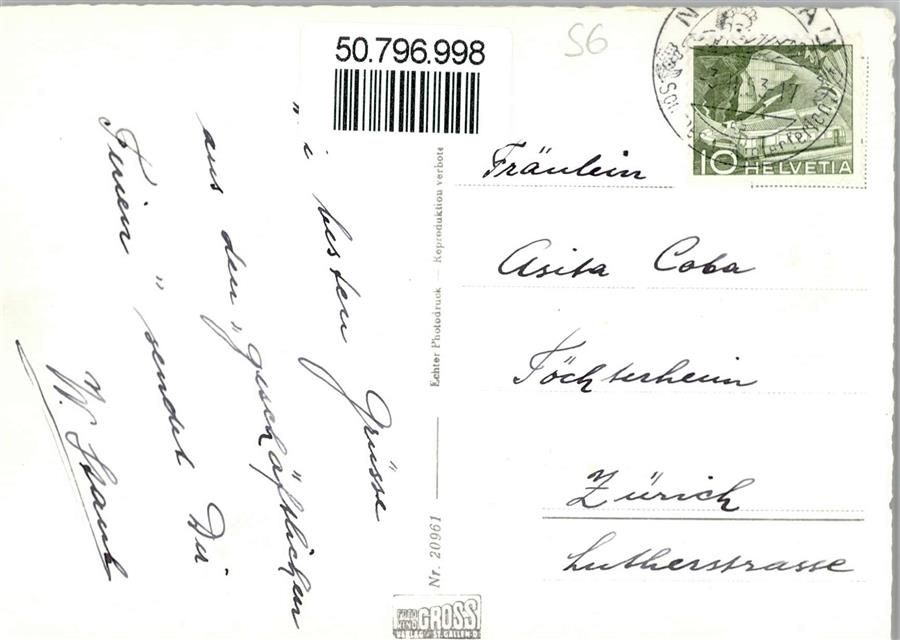 50.796.998
S6
10 HELVETIA
i besten Grüsse
aus den "geschäftlichen
Ferien" sendet Dir
W. Staub
Echter Photodruck — Reproduktion verboten
Nr. 20961
FOTO GROSS
VERLAG ST. GALLEN-O
Fräulein
Asita Coba
Töchterheim
Zürich
Lutherstrasse